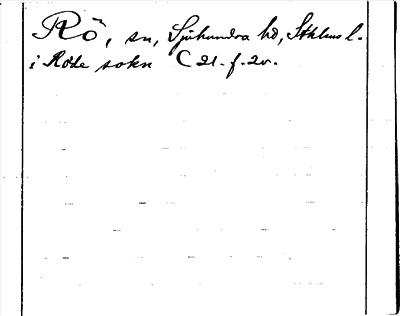 Rö, sn, Sjuhundra hd, Sthlms l.
i Röde sokn C 21. f. 2v.